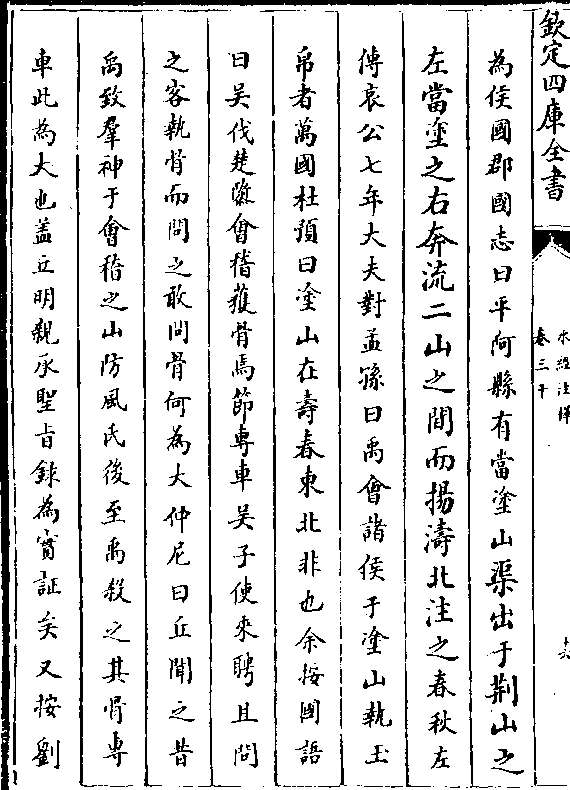 欽定四庫全書
水經注釋
卷三十
十六
為侯國郡國志曰平阿縣有當塗山渠出于荆山之
左當塗之右奔流二山之間而揚濤北注之春秋左
傳哀公七年大夫對孟孫曰禹會諸侯于塗山執玉
帛者萬國杜預曰塗山在壽春東北非也余按國語
曰吳伐楚隳會稽獲骨焉節專車吳子使來聘且問
之客執骨而問之敢問骨何為大仲尼曰丘聞之昔
禹致羣神于會稽之山防風氏後至禹殺之其骨專
車此為大也蓋丘明親承聖旨錄為實証矣又按劉